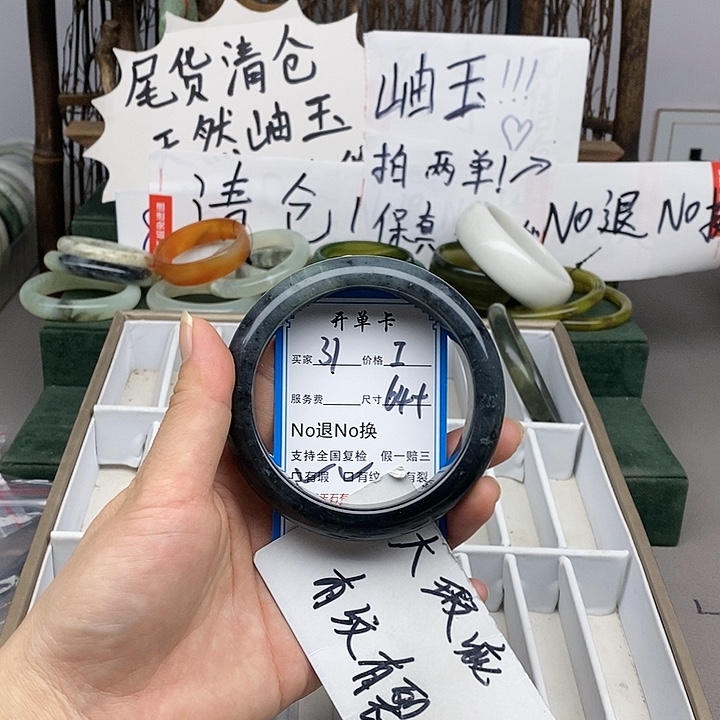 尾货清仓
天然岫玉
清仓!
岫玉!!!
拍两单!
保真
No退 No
开单卡
买家 31 价格 I
服务费 尺寸 64+
No退No换
支持全国复检 假一赔三
口有瑕 口有纹 有裂
玉石有
大瑕疵
有纹有裂